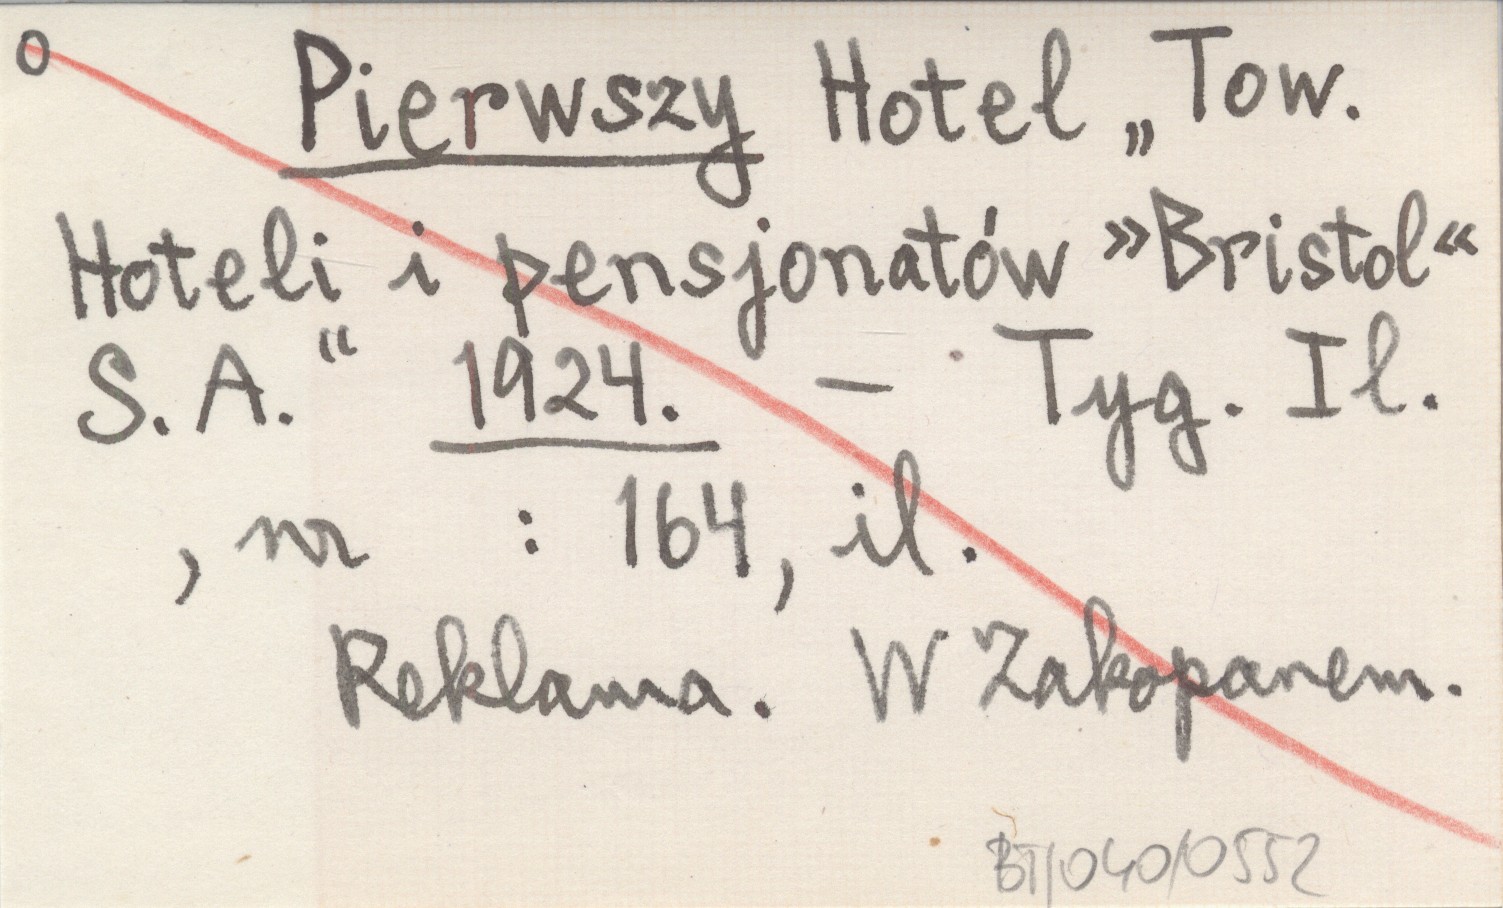 o Pierwszy Hotel „Tow.
Hoteli i pensjonatów »Bristol«
S. A.“ 1924. — Tyg. Il.
, nr : 164, il.
Reklama. W Zakopanem.
BT/040/0552